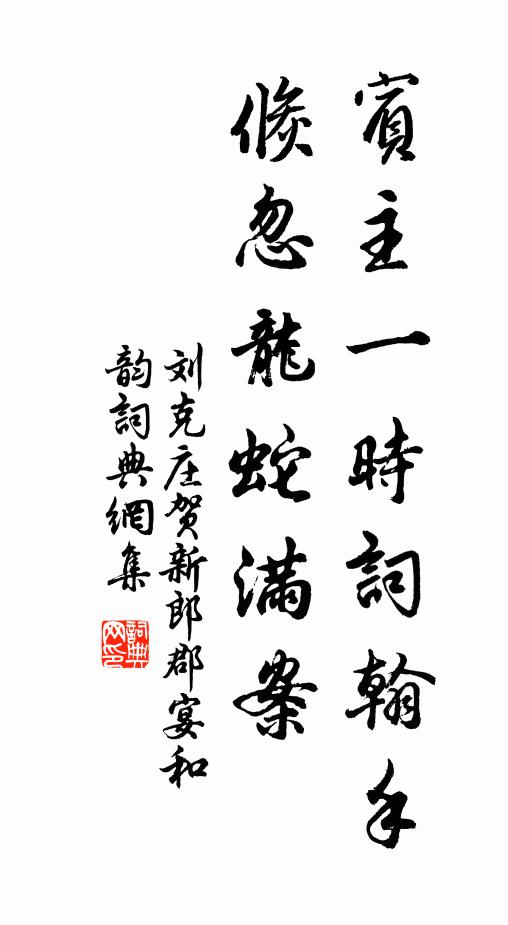 賓主一時詞翰手
倏忽龍蛇滿案
刘克庄贺新郎郡宴和
韵詞典網集
詞典网印